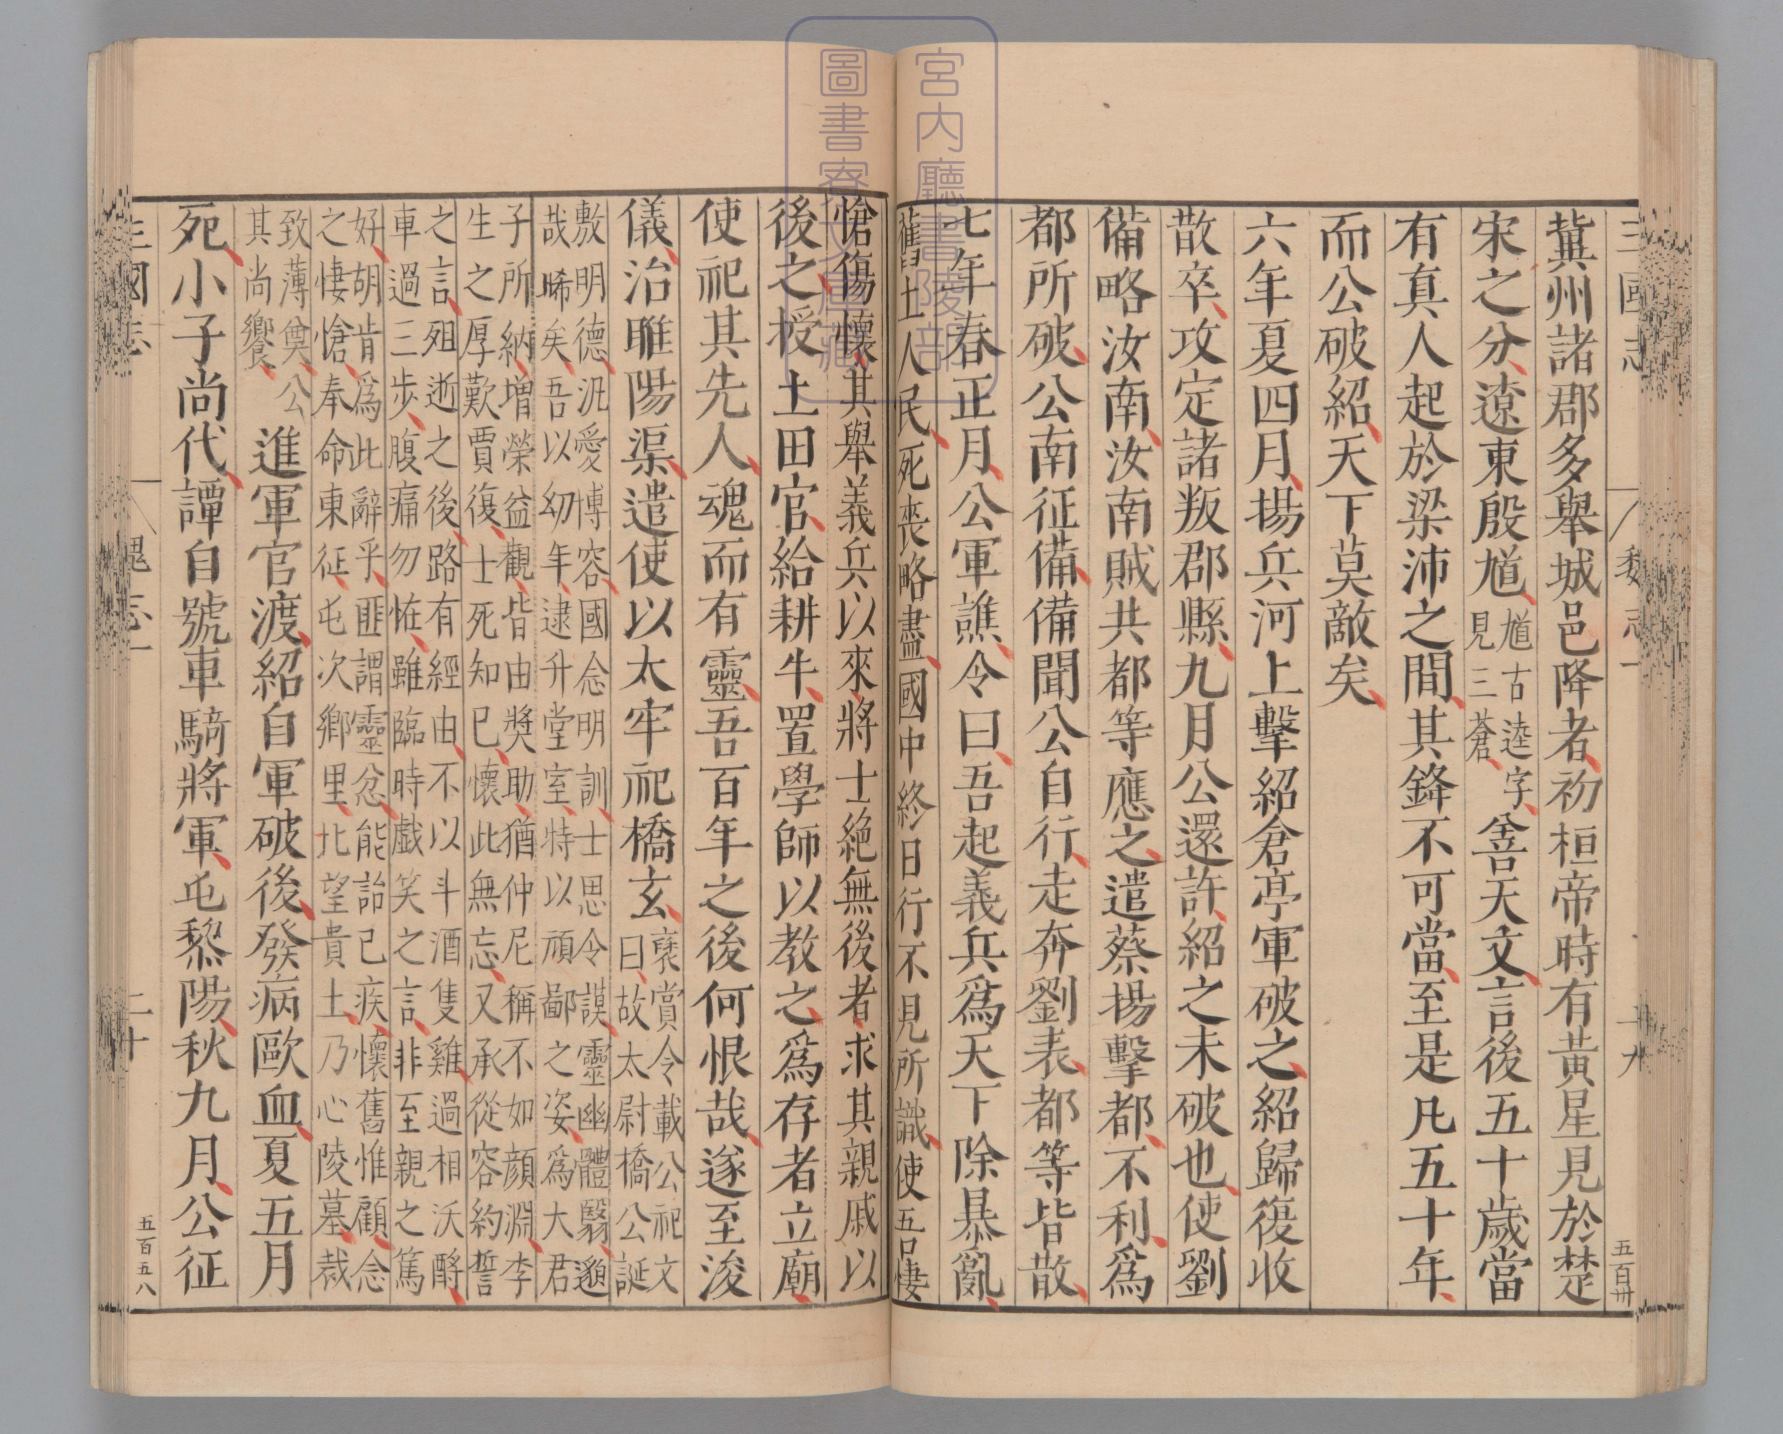 冀州諸郡多舉城邑降者初桓帝時有黃星見於楚
宋之分遼東殷馗馗古逵字見三蒼善天文言後五十歲當
有真人起於梁沛之間其鋒不可當至是凡五十年
而公破紹天下莫敵矣
六年夏四月揚兵河上擊紹倉亭軍破之紹歸復收
散卒攻定諸叛郡縣九月公還許紹之未破也使劉
備略汝南汝南賊共都等應之遣蔡揚擊都不利爲
都所破公南征備備聞公自行走奔劉表都等皆散
七年春正月公軍譙令曰吾起義兵爲天下除暴亂
舊土人民死喪略盡國中終日行不見所識使吾悽
愴傷懷其舉義兵以來將士絕無後者求其親戚以
後之授土田官給耕牛置學師以教之爲存者立廟
使祀其先人魂而有靈吾百年之後何恨哉遂至浚
儀治睢陽渠遣使以太牢祀橋玄
襃賞令載公祀文
曰故太尉橋公誕
敷明德汎愛博容國念明訓士思令謨靈幽體翳邈
哉晞矣吾以幼年逮升堂室特以頑鄙之姿爲大君
子所納增榮益觀皆由奬助猶仲尼稱不如顏淵李
生之厚歎賈復士死知已懷此無忘又承從容約誓
之言殂逝之後路有經由不以斗酒隻雞過相沃酹
車過三步腹痛勿怪雖臨時戲笑之言非至親之篤
好胡肯爲此辭乎匪謂靈忿能詒已疾懷舊惟顧念
之悽愴奉命東征屯次鄉里北望貴土乃心陵墓裁
致薄奠公
其尚饗
進軍官渡紹自軍破後發病歐血夏五月
死小子尚代譚自號車騎將軍屯黎陽秋九月公征
三國志
魏志一
十九
五百卅
三國志
魏志一
二十
五百五八
宮內廳書陵部
圖書寮文庫藏